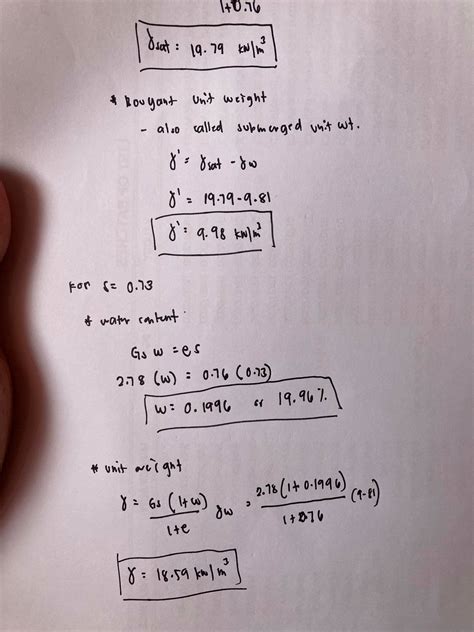 1+0.76
γsat = 19.79 kN/m³
* Bouyant unit weight
- also called submerged unit wt.
γ' = γsat - γw
γ' = 19.79 - 9.81
γ' = 9.98 kN/m³
For s = 0.73
* water content
Gs w = es
2.78 (w) = 0.76 (0.73)
w = 0.1996 or 19.96 %
* unit weight
γ = Gs (1+w) / 1+e γw = 2.78 (1+0.1996) / 1+0.76 (9.81)
γ = 18.59 kN/m³